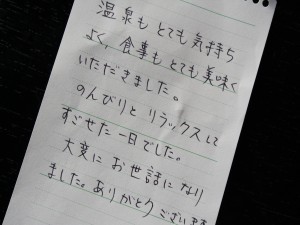 温泉も とても 気持ち
よく、食事も とても美味く
いただきました。
のんびりと リラックスして
すごせた一日でした。
大変に お世話になり
ました。ありがとう ございます